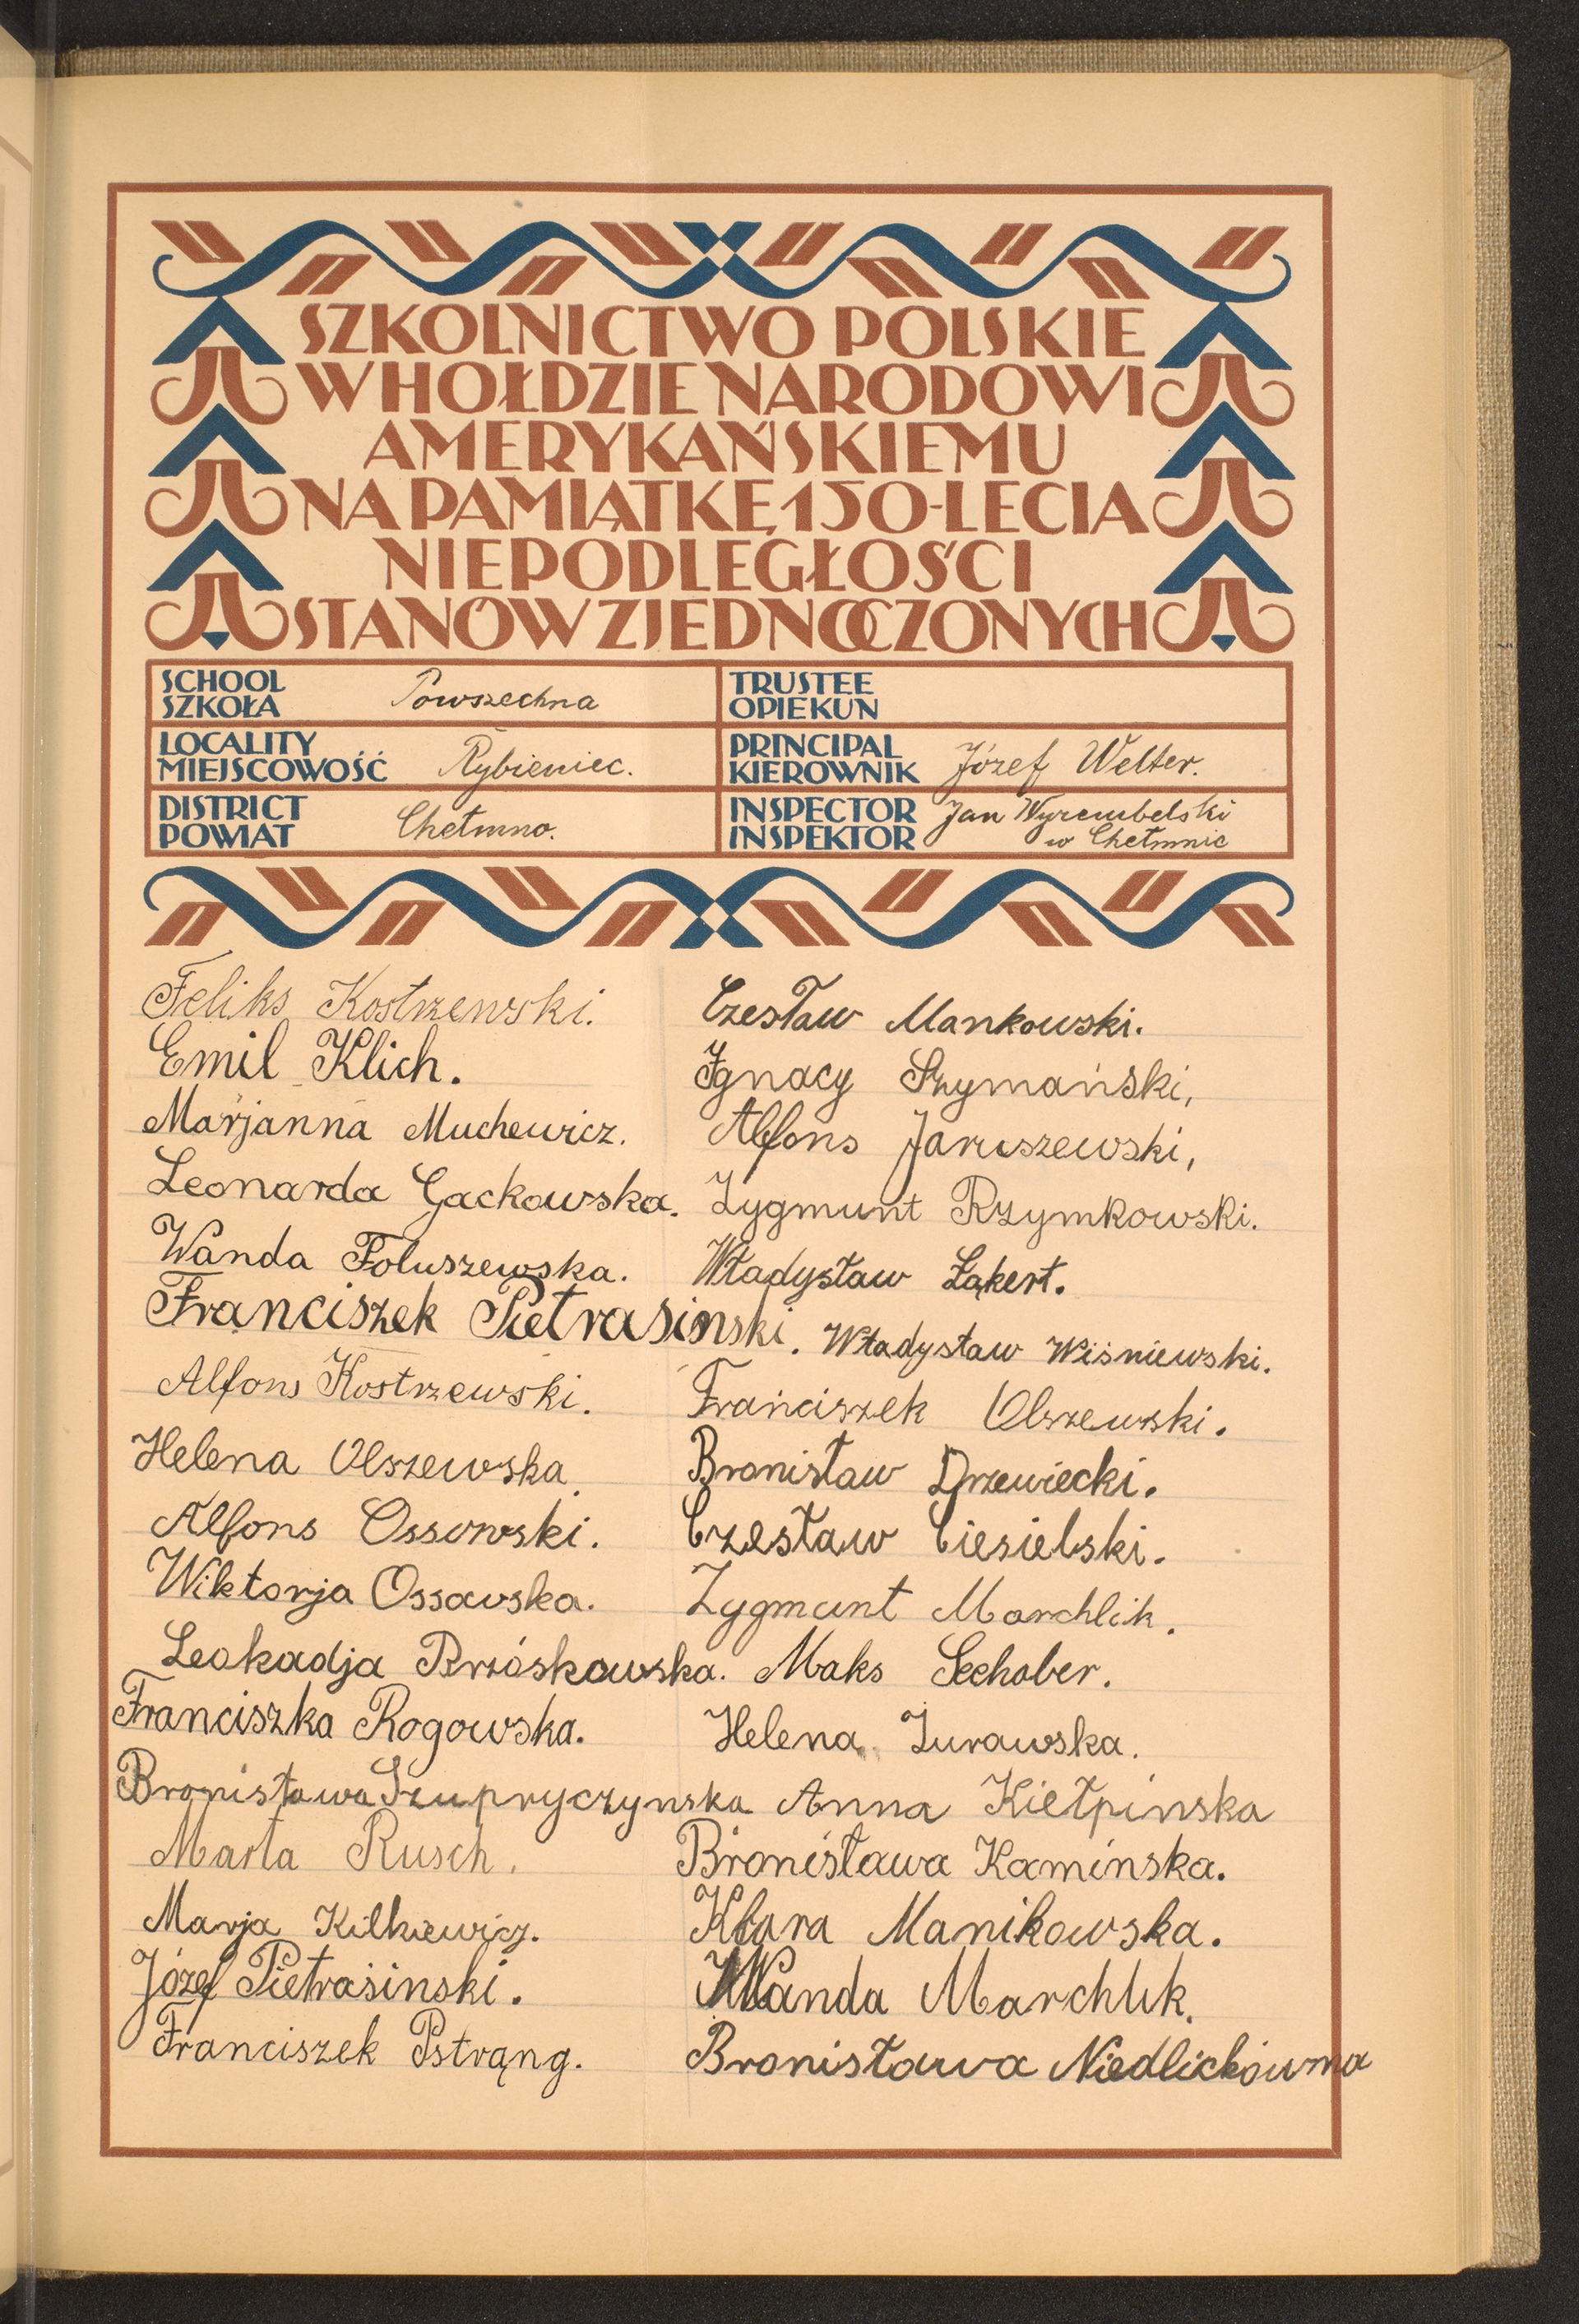 SZKOLNICTWO POLSKIE
W HOŁDZIE NARODOWI
AMERYKAŃSKIEMU
NA PAMIĄTKĘ 150-LECIA
NIEPODLEGŁOŚCI
STANÓW ZJEDNOCZONYCH
SCHOOL
SZKOŁA
Powszechna
TRUSTEE
OPIEKUN
LOCALITY
MIEJSCOWOŚĆ
Rybieniec.
PRINCIPAL
KIEROWNIK
Józef Welter.
DISTRICT
POWIAT
Chełmno.
INSPECTOR
INSPEKTOR
Jan Wyrembelski
w Chełmnie
Feliks Kostrzewski.
Emil Klich.
Marjanna Muchewicz.
Leonarda Gackowska.
Wanda Foluszewska.
Franciszek Pietrasinski.
Alfons Kostrzewski.
Helena Olszewska.
Alfons Ossowski.
Wiktorja Ossowska.
Leokadja Brzóskowska.
Franciszka Rogowska.
Bronisława Szupryczynska
Marta Rusch.
Marja Kilkiewicz.
Józef Pietrasinski.
Franciszek Pstrąng.
Czesław Mankowski.
Ignacy Szymański,
Alfons Jaruszewski,
Zygmunt Rzymkowski.
Władysław Łąkert.
Władysław Wiśniewski.
Franciszek Olszewski.
Bronisław Drzewiecki.
Czesław Ciesielski.
Zygmunt Marchlik.
Maks Seehober.
Helena Żurawska.
Anna Kiełpinska
Bronisława Kaminska.
Klara Manikowska.
Wanda Marchlik.
Bronisława Niedlickówna